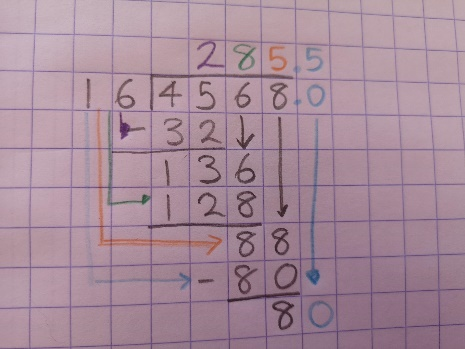 285.5
16 4568.0
- 32
136
128
88
- 80
80